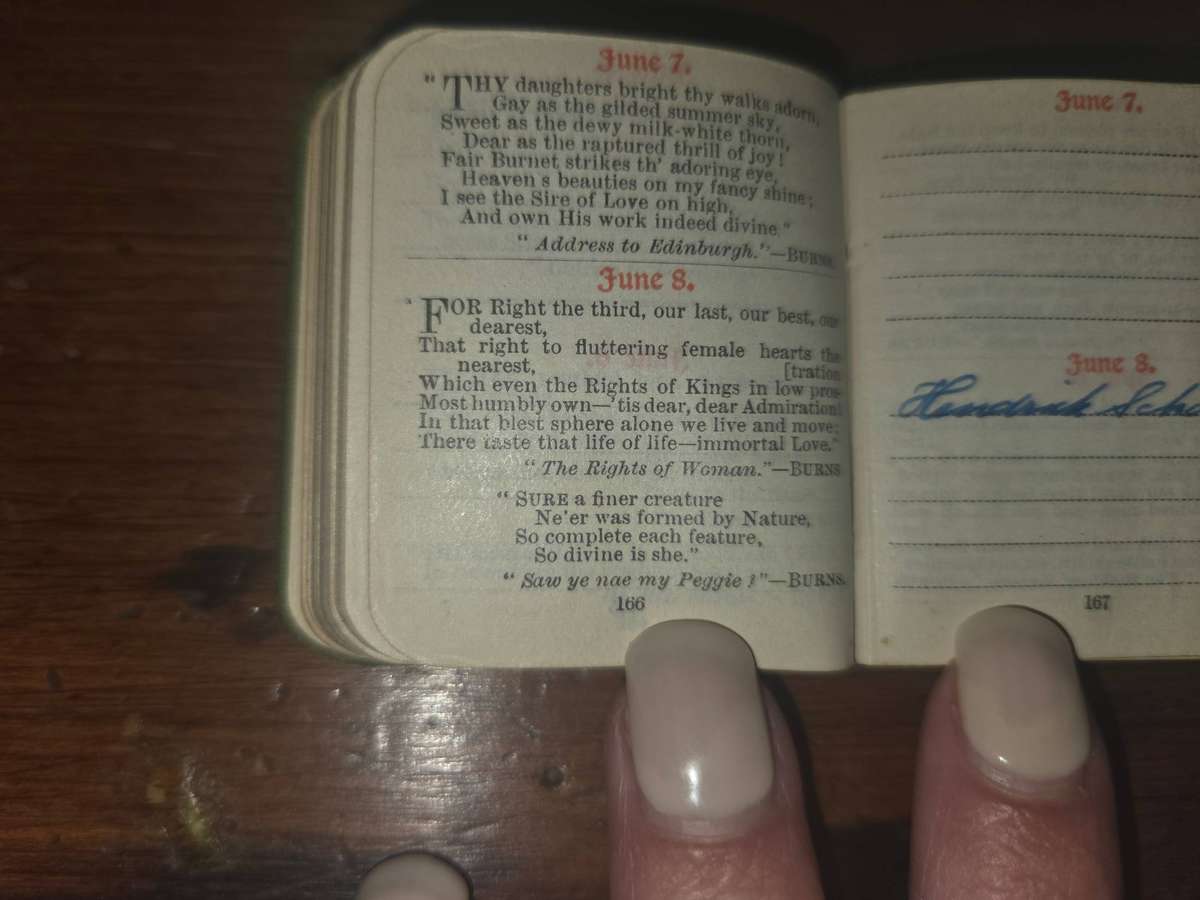 June 7.
"THY daughters bright thy walks adorn,
Gay as the gilded summer sky,
Sweet as the dewy milk-white thorn,
Dear as the raptured thrill of joy!
Fair Burnet strikes th' adoring eye,
Heaven s beauties on my fancy shine;
I see the Sire of Love on high,
And own His work indeed divine."
"Address to Edinburgh."—BURNS.
June 8.
"FOR Right the third, our last, our best, our
dearest,
That right to fluttering female hearts the
nearest, [tration
Which even the Rights of Kings in low pros-
Most humbly own—'tis dear, dear Admiration!
In that blest sphere alone we live and move;
There taste that life of life—immortal Love."
"The Rights of Woman."—BURNS
"SURE a finer creature
Ne'er was formed by Nature,
So complete each feature,
So divine is she."
"Saw ye nae my Peggie?"—BURNS.
166
June 7.
June 8.
Hendrik
167